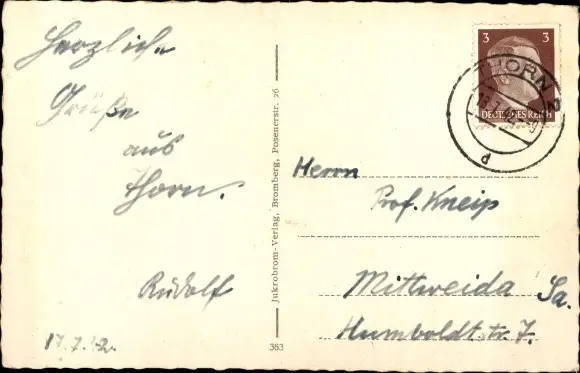 Herzliche
Grüße
aus
Thorn.
Rudolf
17.7.42.
Jukrobrom-Verlag, Bromberg, Posenerstr. 26
363
3 3
DEUTSCHES REICH
THORN 2
d
Herrn
Prof. Kneip
Mittweida Sa.
Humboldtstr. 7.